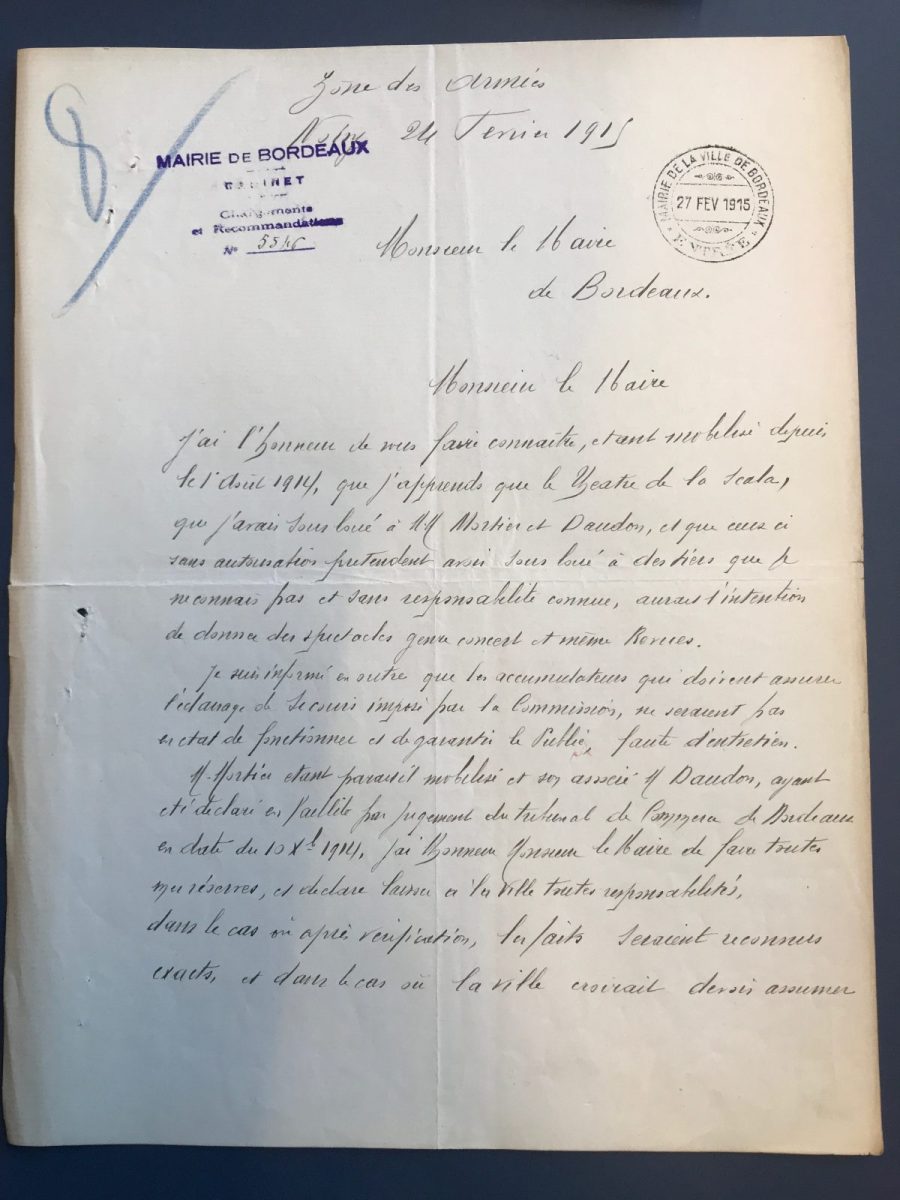 Zône des Armées
24 Fevrier 1915
MAIRIE DE BORDEAUX
CABINET
Chargements
et Recommandations
N° 5546
MAIRIE DE LA VILLE DE BORDEAUX
27 FEV 1915
ENTRÉE
Monsieur le Maire
de Bordeaux.
Monsieur le Maire
J'ai l'honneur de vous faire connaître, etant mobilisé depuis
le 1 Août 1914, que j'apprends que le Theatre de la Scala,
que j'avais sous loué à M.M Mortier et Daudon, et que ceux ci
sans autorisation pretendent avoir sous loué à des tiers que je
reconnais pas et sans responsabilité connue, aurait l'intention
de donner des spectacles genre concert et même Revues.
Je suis informé en outre que les accumulateurs qui doivent assurer
l'éclairage de Secours imposé par la Commission, ne seraient pas
en etat de fonctionner et de garantir le Public, faute d'entretien.
M. Mortier etant parait il mobilisé et son associé M Daudon, ayant
eté declaré en faillite par jugement du tribunal de Commerce de Bordeaux
en date du 10 Xb 1914, j'ai l'honneur Monsieur le Maire de faire toutes
mes réserves, et declare laisser à la ville toutes responsabilités,
dans le cas où après verification, les faits seraient reconnus
exacts, et dans le cas où la ville croirait devoir assumer